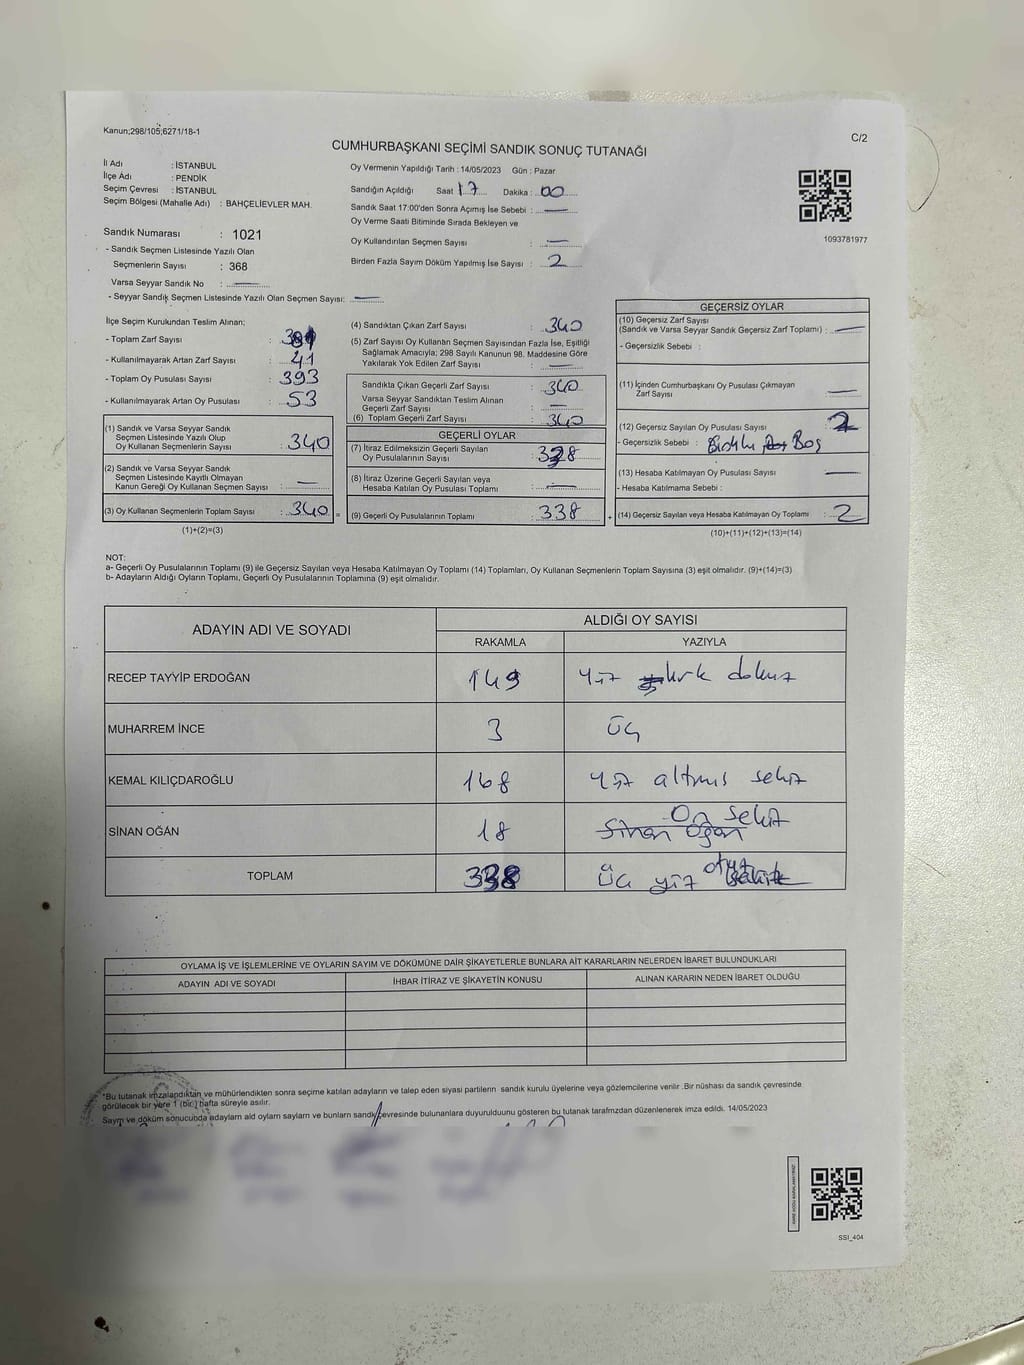 Kanun;298/105;6271/18-1
C/2
CUMHURBAŞKANI SEÇİMİ SANDIK SONUÇ TUTANAĞI
İl Adı : İSTANBUL
İlçe Adı : PENDİK
Seçim Çevresi : İSTANBUL
Seçim Bölgesi (Mahalle Adı) : BAHÇELİEVLER MAH.
Sandık Numarası : 1021
- Sandık Seçmen Listesinde Yazılı Olan
Seçmenlerin Sayısı : 368
Varsa Seyyar Sandık No : —
- Seyyar Sandık Seçmen Listesinde Yazılı Olan Seçmen Sayısı: —
Oy Vermenin Yapıldığı Tarih : 14/05/2023 Gün : Pazar
Sandığın Açıldığı Saat 17 Dakika : 00
Sandık Saat 17:00'den Sonra Açımış İse Sebebi : —
Oy Verme Saati Bitiminde Sırada Bekleyen ve
Oy Kullandırılan Seçmen Sayısı : —
Birden Fazla Sayım Döküm Yapılmış İse Sayısı : 2
1093781977
İlçe Seçim Kurukundan Teslim Alınan:
- Toplam Zarf Sayısı :
- Kullanılmayarak Artan Zarf Sayısı : 41
- Toplam Oy Pusulası Sayısı : 393
- Kullanılmayarak Artan Oy Pusulası : 53
(1) Sandık ve Varsa Seyyar Sandık
Seçmen Listesinde Yazılı Olup
Oy Kullanan Seçmenlerin Sayısı : 340
(2) Sandık ve Varsa Seyyar Sandık
Seçmen Listesinde Kayıtlı Olmayan
Kanun Gereği Oy Kullanan Seçmen Sayısı : —
(3) Oy Kullanan Seçmenlerin Toplam Sayısı : 340
(1)+(2)=(3)
=
(4) Sandıktan Çıkan Zarf Sayısı : 340
(5) Zarf Sayısı Oy Kullanan Seçmen Sayısından Fazla İse, Eşitliği
Sağlamak Amacıyla; 298 Sayılı Kanunun 98. Maddesine Göre
Yakılarak Yok Edilen Zarf Sayısı : —
Sandıkta Çıkan Geçerli Zarf Sayısı : 340
Varsa Seyyar Sandıktan Teslim Alınan
Geçerli Zarf Sayısı : —
(6) Toplam Geçerli Zarf Sayısı : 340
GEÇERLİ OYLAR
(7) İtiraz Edilmeksizin Geçerli Sayılan
Oy Pusulalarının Sayısı : 338
(8) İtiraz Üzerine Geçerli Sayılan veya
Hesaba Katılan Oy Pusulası Toplamı : —
(9) Geçerli Oy Pusulalarının Toplamı : 338
+
GEÇERSİZ OYLAR
(10) Geçersiz Zarf Sayısı
(Sandık ve Varsa Seyyar Sandık Geçersiz Zarf Toplamı) : —
- Geçersizlik Sebebi :
(11) İçinden Cumhurbaşkanı Oy Pusulası Çıkmayan
Zarf Sayısı : —
(12) Geçersiz Sayılan Oy Pusulası Sayısı : 2
- Geçersizlik Sebebi : Boş
(13) Hesaba Katılmayan Oy Pusulası Sayısı : —
- Hesaba Katılmama Sebebi :
(14) Geçersiz Sayılan veya Hesaba Katılmayan Oy Toplamı : 2
(10)+(11)+(12)+(13)=(14)
NOT:
a- Geçerli Oy Pusulalarının Toplamı (9) ile Geçersiz Sayılan veya Hesaba Katılmayan Oy Toplamı (14) Toplamları, Oy Kullanan Seçmenlerin Toplam Sayısına (3) eşit olmalıdır. (9)+(14)=(3)
b- Adayların Aldığı Oyların Toplamı, Geçerli Oy Pusulalarının Toplamına (9) eşit olmalıdır.
ADAYIN ADI VE SOYADI ALDIĞI OY SAYISI
RAKAMLA YAZIYLA
RECEP TAYYİP ERDOĞAN 149 yüz kırk dokuz
MUHARREM İNCE 3 üç
KEMAL KILIÇDAROĞLU 168 yüz altmış sekiz
SİNAN OĞAN 18 Sinan Oğan On sekiz
TOPLAM 338 üç yüz otuz
OYLAMA İŞ VE İŞLEMLERİNE VE OYLARIN SAYIM VE DÖKÜMÜNE DAİR ŞİKAYETLERLE BUNLARA AİT KARARLARIN NELERDEN İBARET BULUNDUKLARI
ADAYIN ADI VE SOYADI İHBAR İTİRAZ VE ŞİKAYETİN KONUSU ALINAN KARARIN NEDEN İBARET OLDUĞU
*Bu tutanak imzalandıktan ve mühürlendikten sonra seçime katılan adayların ve talep eden siyasi partilerin sandık kurulu üyelerine veya gözlemcilerine verilir .Bir nüshası da sandık çevresinde
görülecek bir yere 1 (bir ) hafta süreyle asılır.
Sayım ve döküm sonucubda adayların ald oyların sayların ve bunların sandık çevresinde bulunanlara duyurulduunu gösteren bu tutanak tarafmzdan düzenlenerek imza edildi. 14/05/2023
SSI_404